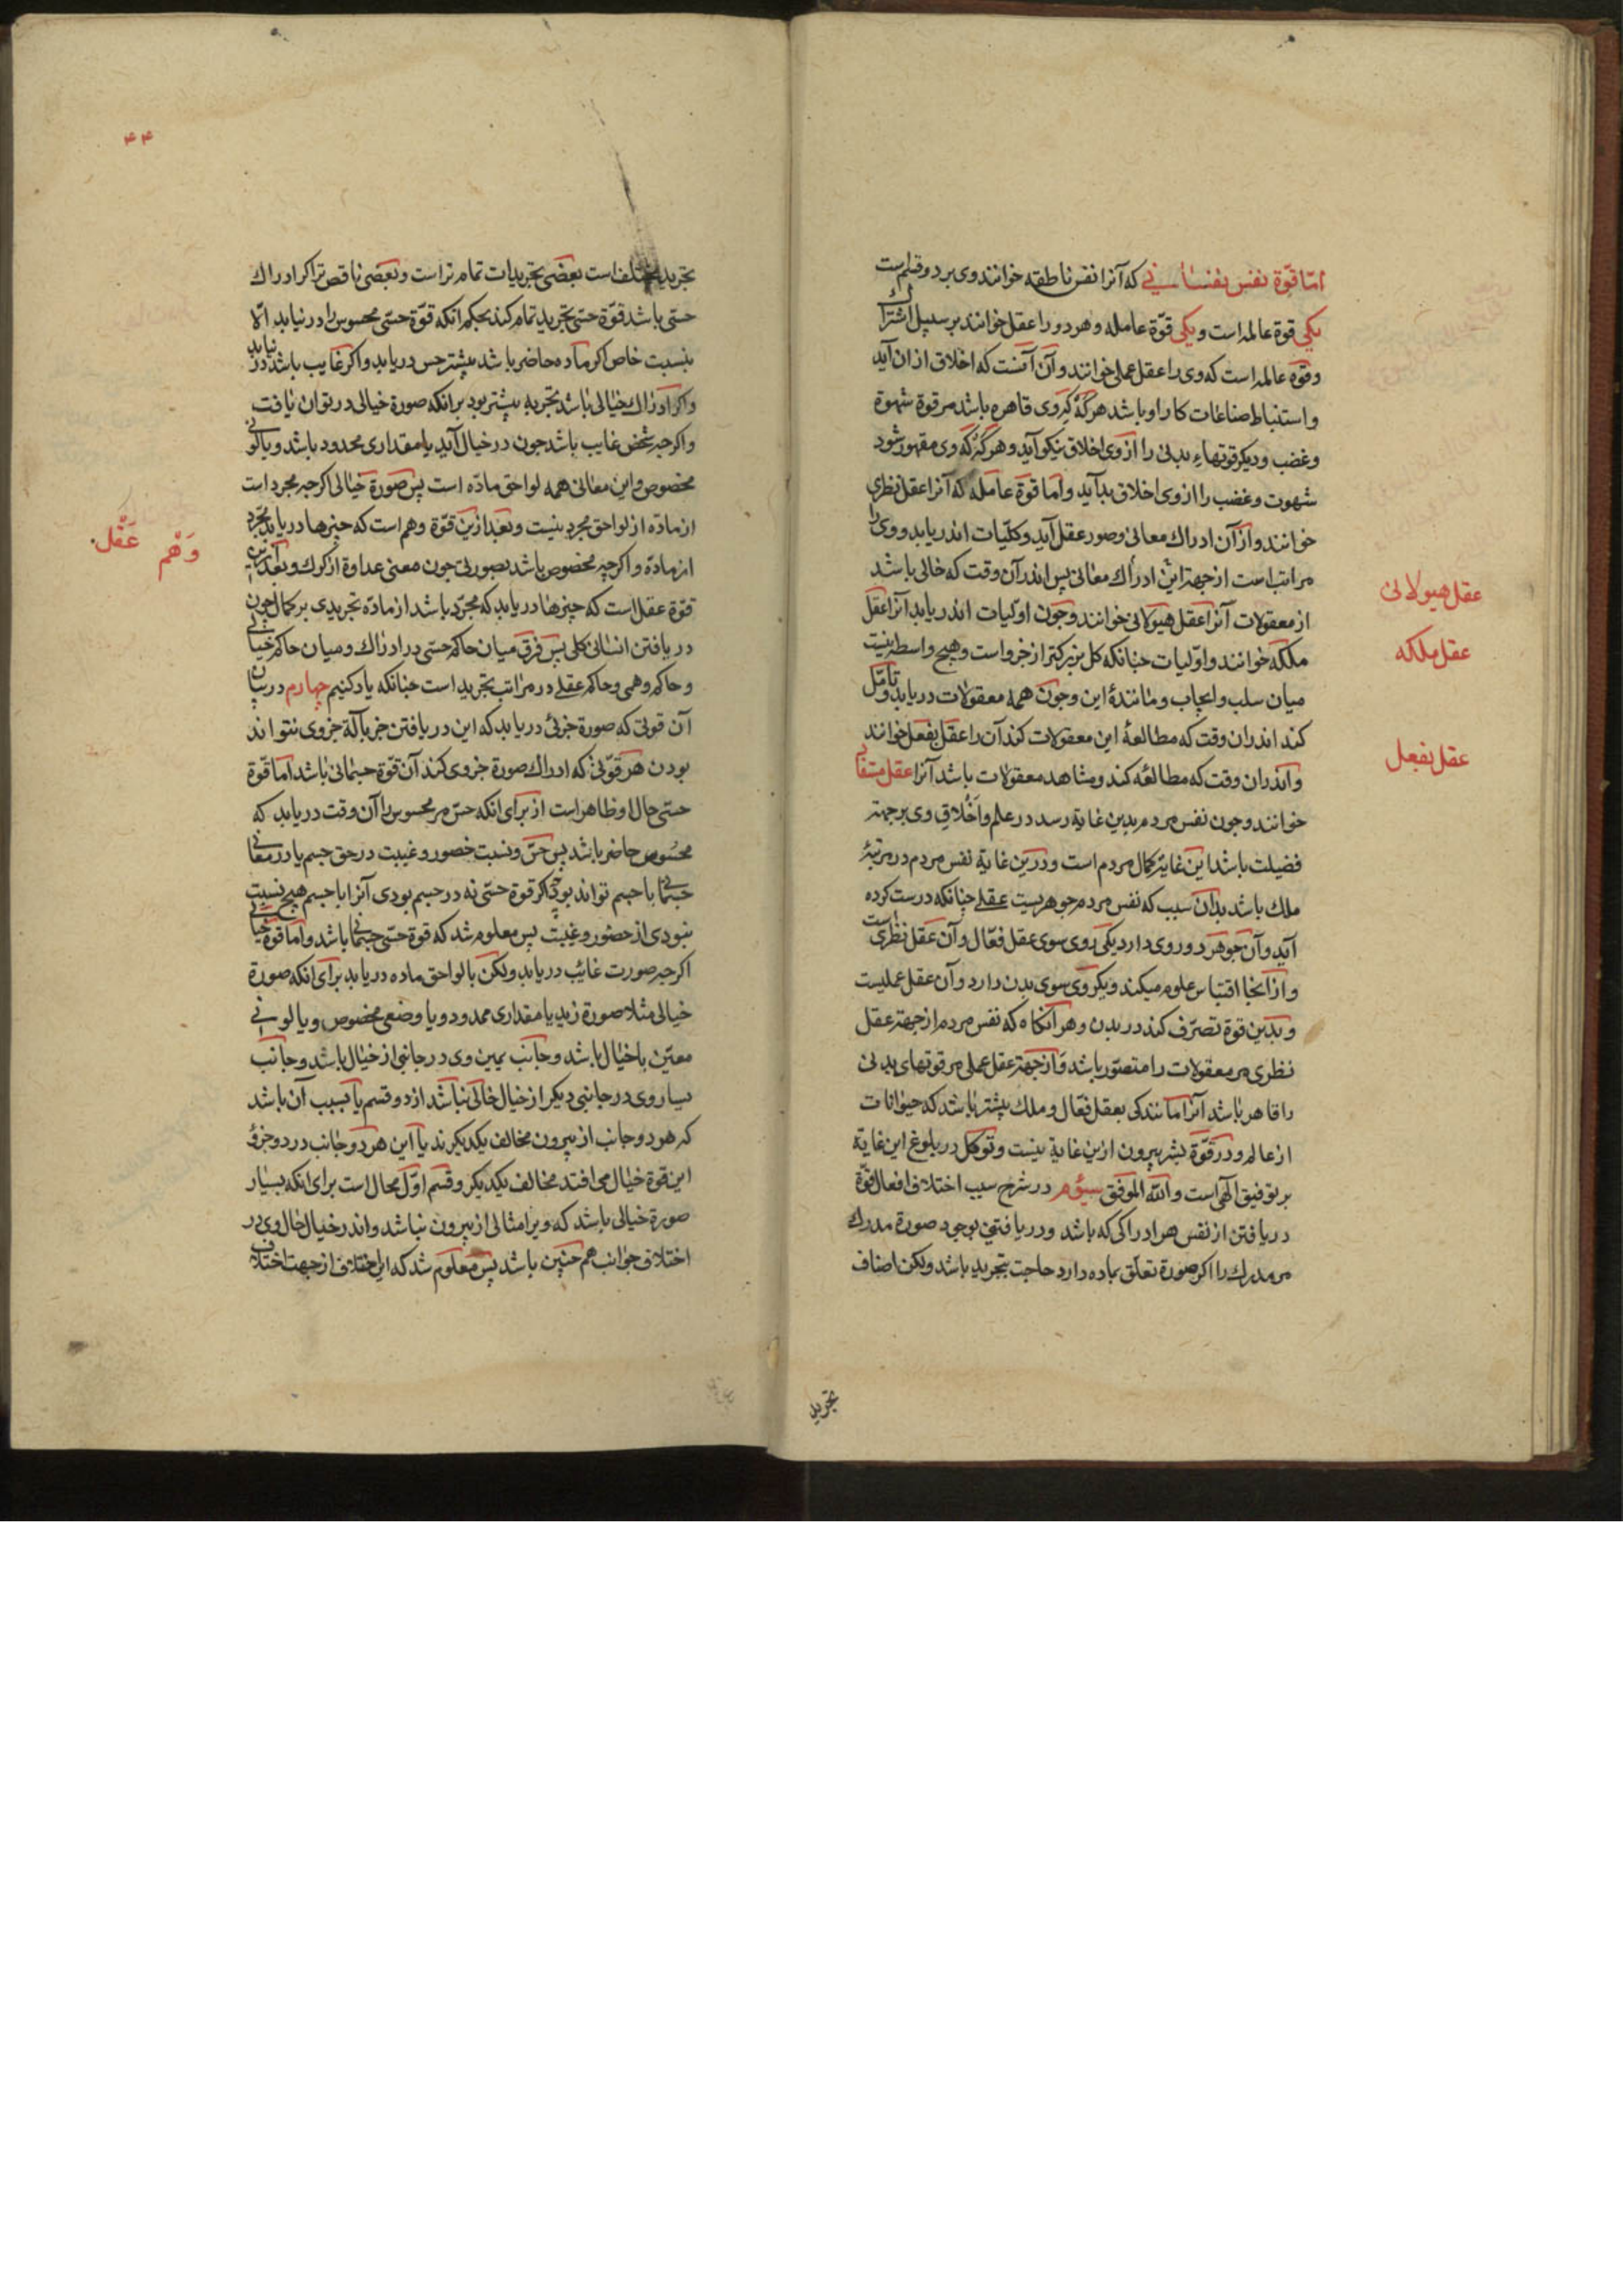 امّا قوّة نفس نفسانی که آنرا نفس ناطقه خوانند وی بر دو قسم است
یکی قوة عالمه است و یکی قوّة عامله و هر دو را عقل خوانند بر سبیل اشتراک
و قوّة عالمه است که وی را عقل عملی خوانند و آن آنست که اخلاق از ان آید
و استنباط صناعات کار او باشد هرگه که وی قاهره باشد مر قوة شهوة
و غضب و دیکر قوتهاء بدنی را از وی اخلاق نیکو آید و هرگه که وی مقهور شود
شهوت و غضب را از وی اخلاق بد آید و اما قوة عامله که آنرا عقل نظری
خوانند و از آن ادراك معانی و صور عقل آید و کلّیات اندر یابد و وی را
مراتب است از جهة این ادراك معانی پس اندر آن وقت که خالی باشد
از معقولات آنرا عقل هیولانی خوانند و جون اوّلیات اندر یابد آنرا عقل
ملکه خوانند و اوّلیات جنانکه کل بزرکتر از جزو است و هیج واسطه نیست
میان سلب و ایجاب و مانندۀ این و جون همه معقولات دریابد و تأمّل
کند اندران وقت که مطالعۀ این معقولات کند آن را عقل بفعل خوانند
و اندران وقت که مطالعه کند و مشاهد معقولات باشد آنرا عقل مستفاد
خوانند و جون نفس مردم بدین غایة رسد در علم و اخلاق وی بر جهة
فضیلت باشد این غایة کمال مردم است و درین غایة نفس مردم در مرتبۀ
ملك باشد بدان سبب که نفس مردم جوهریست عقلی جنانکه درست کرده
آید و آن جوهر دو روی دارد یکی روی سوی عقل فعّال و آن عقل نظری است
و از آنجا اقتباس علوم میکند و یکروی سوی بدن دارد و آن عقل عملیست
و بدین قوة تصرّف کند در بدن و هر آنکاه که نفس مردم از جهة عقل
نظری مر معقولات را متصوّر باشد و از جهة عقل عملی مر قوتهای بدنی
را قاهر باشد آنرا مانندکی بعقل فعّال و ملك بیشتر باشد که حیوانات
از عالم و در قوّة بشر بیرون ازین غایة نیست و توکل در بلوغ این غایة
بر توفیق الٓهی است و الله الموفق سیؤم در شرح سبب اختلاف افعال قوّة
دریافتن از نفس هر ادراکی که باشد و دریافتن بوجود صورة مدرك
مر مدرك را اکر صورة تعلّق بماده دارد حاجت بتجرید باشد ولکن اصناف
تجرید
عقل هیولانی
عقل ملکه
عقل بفعل
۴۴
تجرید مختلف است بعضی تجریدات تمام تر است و بعضی ناقص تر اکر ادراك
حسّی باشد قوّة حسّی تجرید تمام کند بحکم انکه قوّة حسّی محسوس را در نیابد الّا
بنسبت خاص اکر ماده حاضر باشد بیشتر حس دریابد و اکر غایب باشد در نیابد
و اکر ادراك خیالی باشد تجرید بیشتر بود برانکه صورة خیالی در توان یافت
و اکرجه شخص غایب باشد جون در خیال آید با مقداری محدود باشد و با لونی
مخصوص و این معانی همه لواحق مادّه است پس صورة خیالی اکرجه مجرد است
از مادّه از لواحق مجرد نیست و بعد ازین قوّة وهم است که جیزها دریابد مجرّد
از مادّه و اکرجه مخصوص باشد بصورتی جون معنی عداوة از کرك و بعد ازین
قوّة عقل است که جیزها دریابد که مجرّد باشد از مادّه تجریدی بر کمال جون
دریافتن انسانی کلی پس فرق میان حاکم حسّی در ادراك و میان حاکم خیالی
و حاکم وهمی و حاکم عقلی در مراتب تجرید است جنانکه یاد کنیم جهارم در بیان
آن قوتی که صورة جزئی دریابد که این دریافتن جز بآلة جزوی نتواند
بودن هر قوّتی که ادراك صورة جزوی کند آن قوّة جسمانی باشد اما قوّة
حسّی حال او ظاهر است از برای انکه حسّ مر محسوس را آن وقت دریابد که
محسوس حاضر باشد پس حسّ و نسبت حضور و غیبت در حق جسم یا در معانی
جسمانی با جسم تواند بود جه اکر قوة حسّی نه در جسم بودی آنرا با جسم هیج نسبت
نبودی از حضور و غیبت پس معلوم شد که قوة حسّی جسمانی باشد و اما قوة خیالی
اکرجه صورت غائب دریابد ولکن با لواحق ماده دریابد برای انکه صورة
خیالی مثلا صورة زید با مقداری ممدود و با وضعی مخصوص و با لونی
معیّن با خیال باشد و جانب یمین وی در جانبی از خیال باشد و جانب
یسار وی در جانبی دیکر از خیال خالی نباشد از دو قسم یا بسبب آن باشد
که هر دو جانب از بیرون مخالف یکدیکرند یا این هر دو جانب در دو جزؤ
این قوة خیال می افتد مخالف یکدیکر و قسم اوّل محال است برای انکه بسیار
صورة خیالی باشد که ویرا مثالی از بیرون نباشد و اندر خیال حال وی در
اختلاف جوانب هم جنین باشد پس معلوم شد که این اختلاف از جهت اختلاف
وَهْم
عَقْل